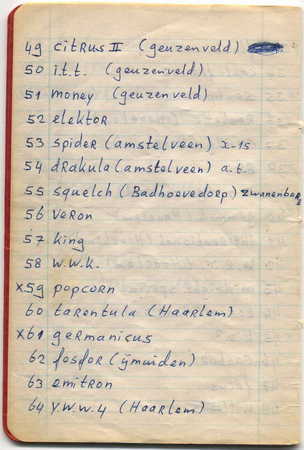 49 citrus II (geuzenveld)
50 i.t.t. (geuzenveld)
51 money (geuzenveld)
52 elektor
53 spider (amstelveen) x-15
54 drakula (amstelveen) a.t.
55 squelch (Badhoevedorp) zwanenburg
56 veron
57 king
58 w.w.k.
x59 popcorn
60 tarentula (Haarlem)
x61 germanicus
62 fosfor (ijmuiden)
63 emitron
64 Y.W.W.4 (Haarlem)